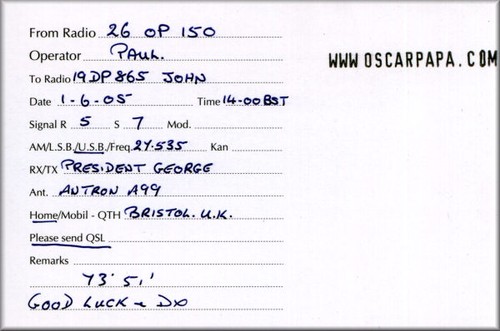 From Radio 26 OP 150
Operator PAUL.
WWW OSCARPAPA.COM
To Radio 19DP865 JOHN
Date 1-6-05 Time 14-00 BST
Signal R 5 S 7 Mod.
AM/L.S.B./U.S.B./Freq. 27.535 Kan
RX/TX PRESIDENT GEORGE
Ant. ANTRON A99
Home/Mobil - QTH BRISTOL. U.K.
Please send QSL
Remarks
73' 51'
GOOD LUCK & DX